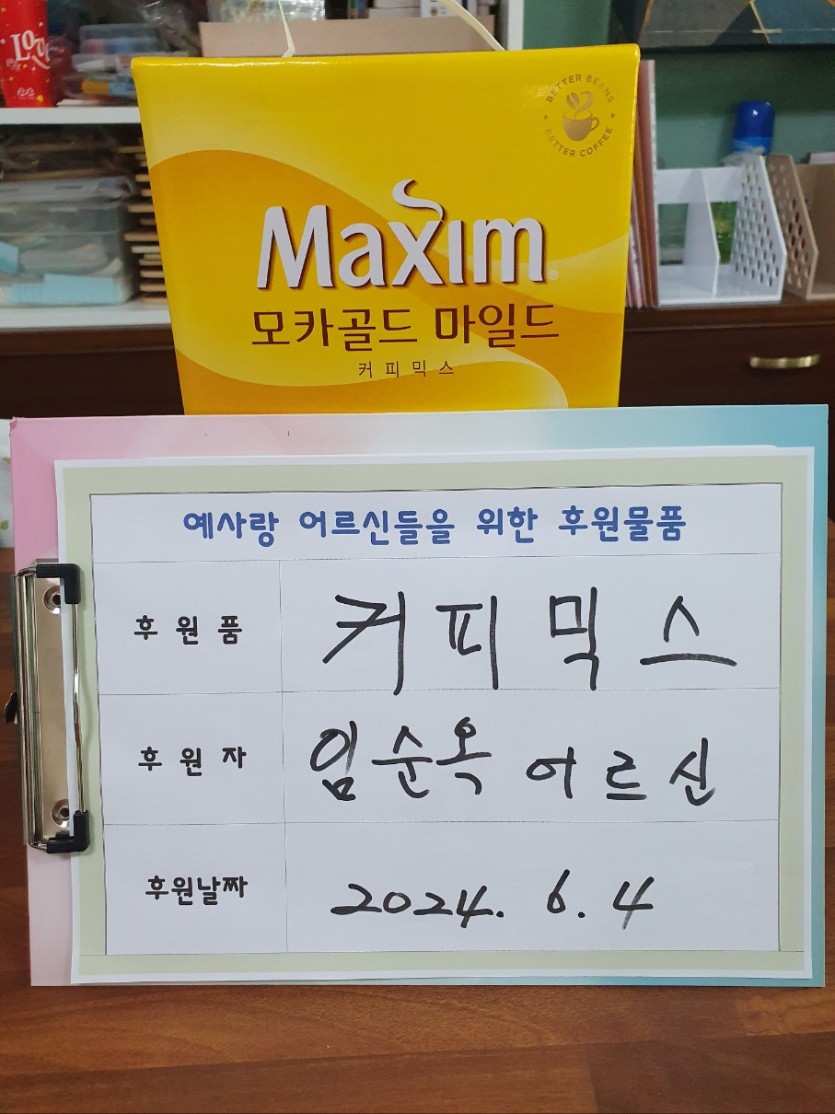 Love
BETTER BEANS
BETTER COFFEE
Maxim
모카골드 마일드
커피믹스
예사랑 어르신들을 위한 후원물품
후원품 커피믹스
후원자 임순옥 어르신
후원날짜 2024. 6. 4